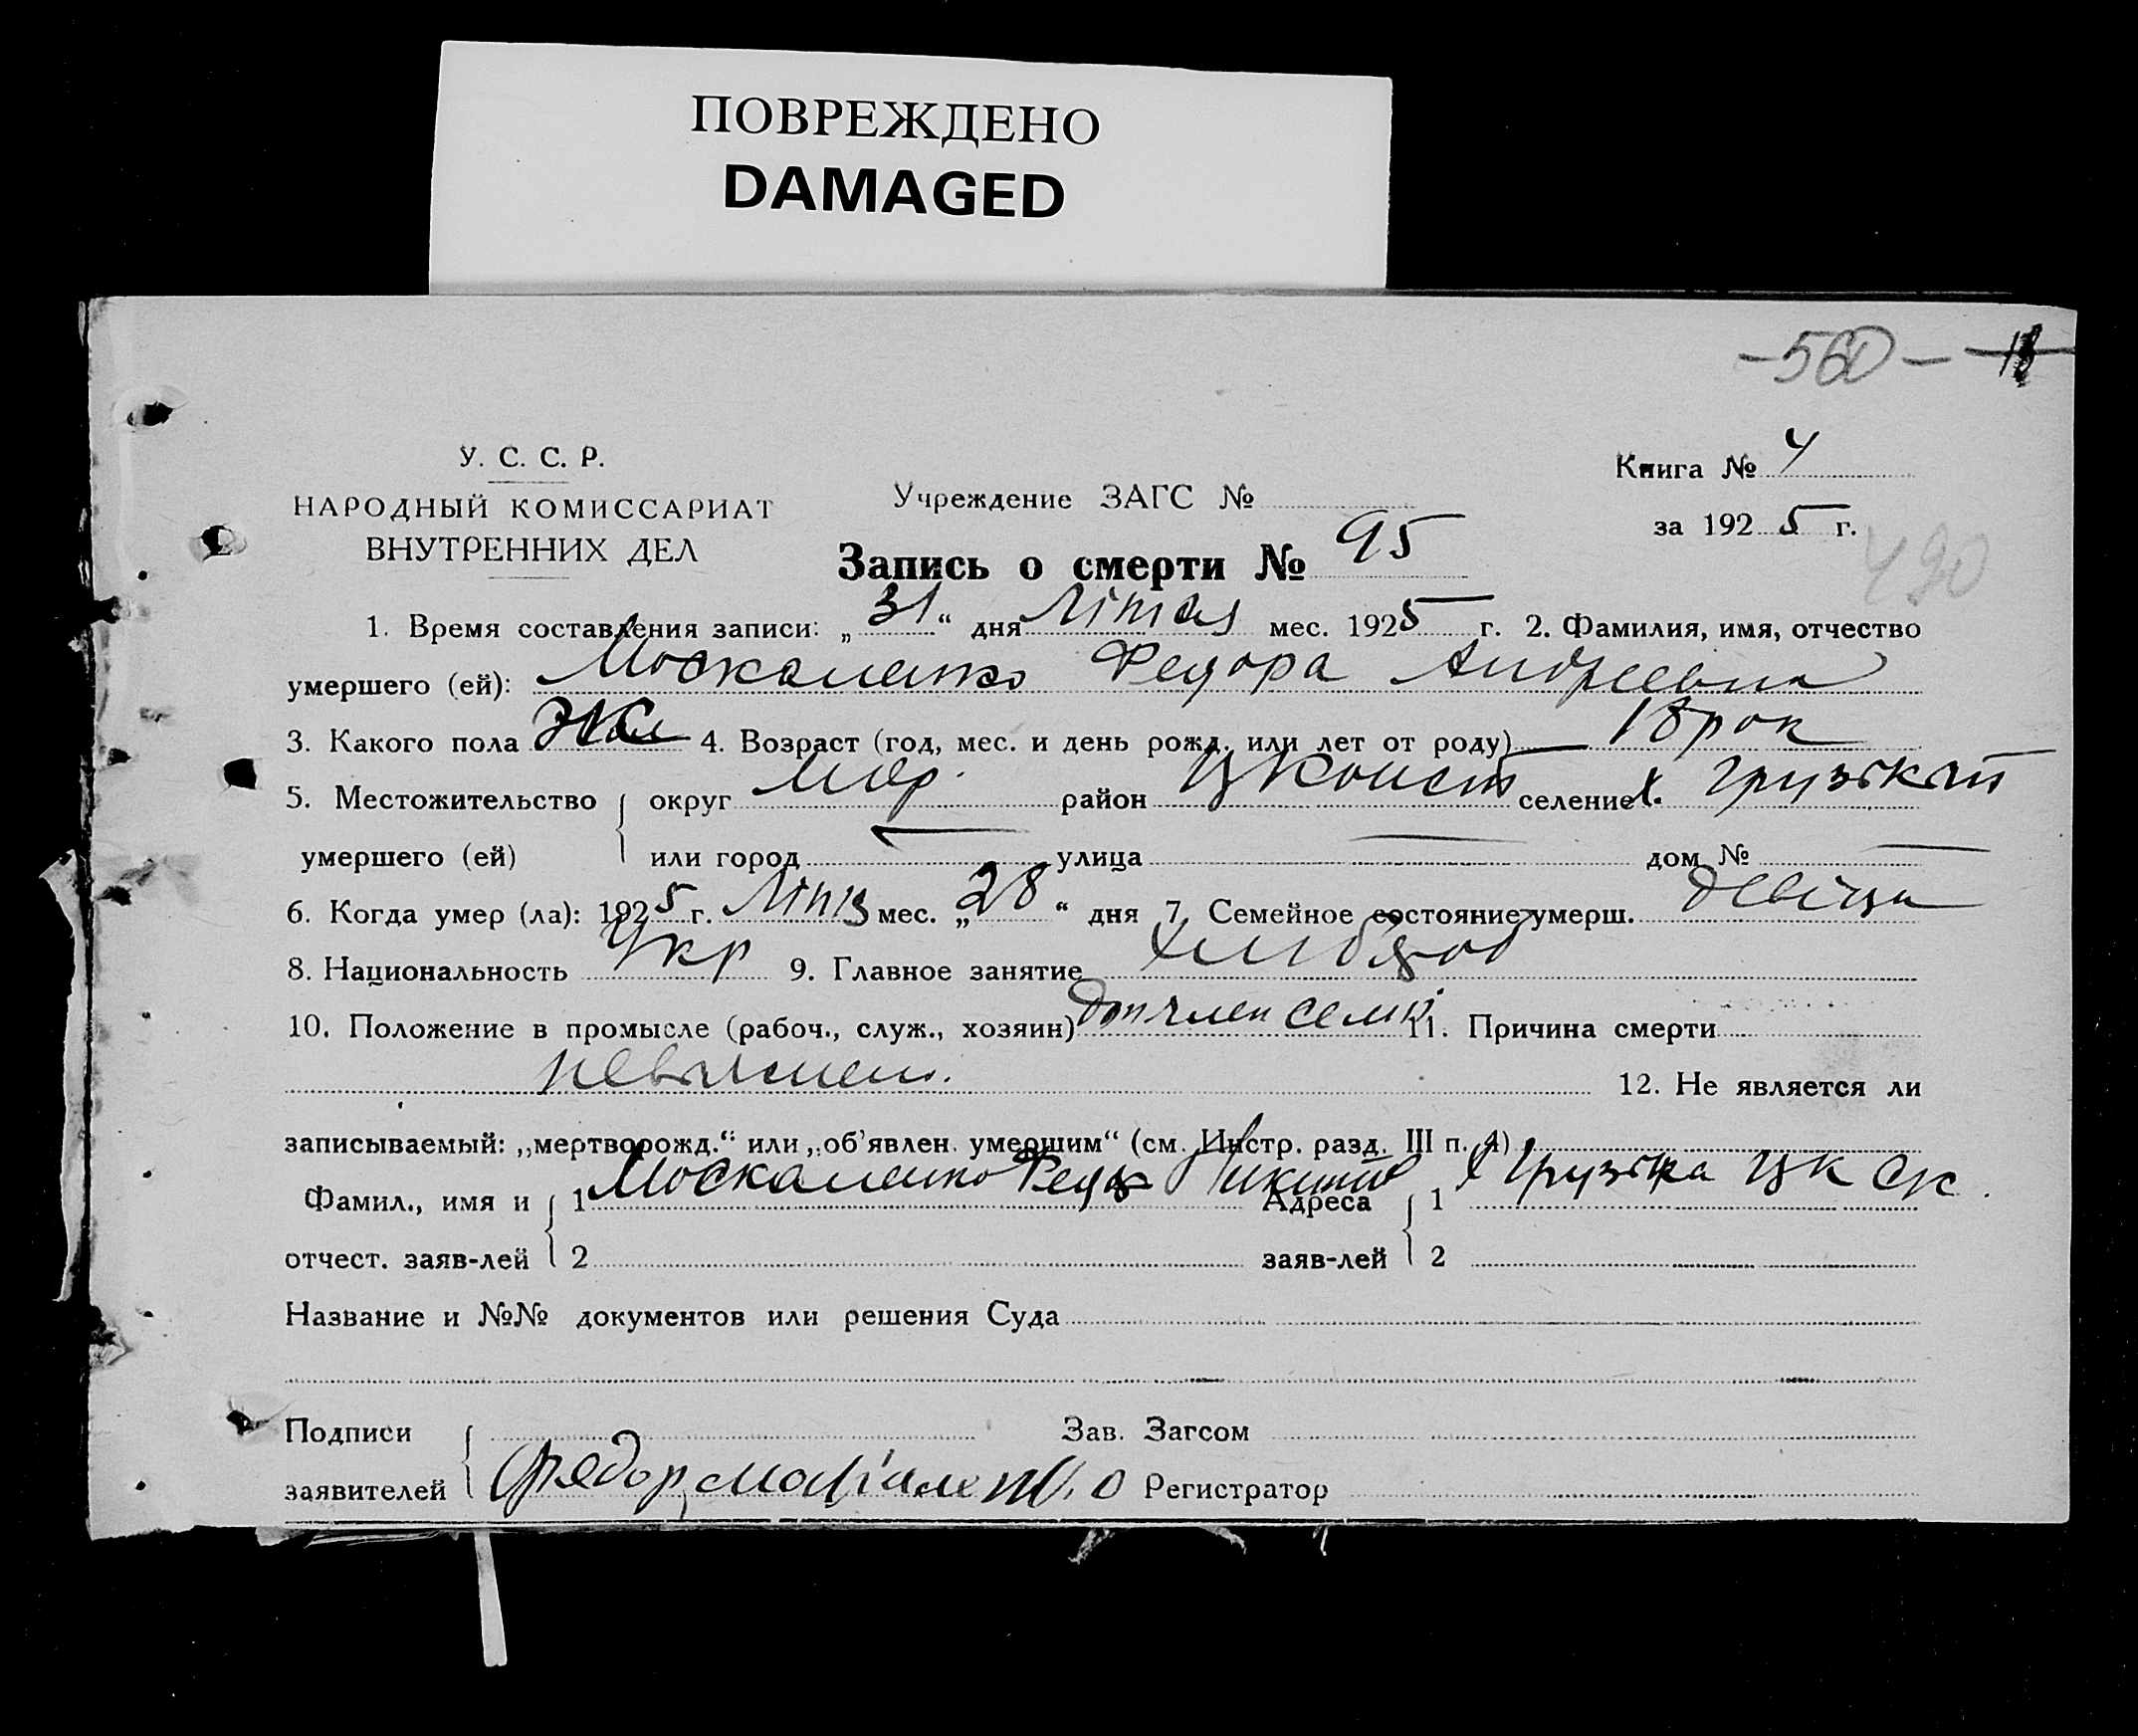 ПОВРЕЖДЕНО
DAMAGED
-560-
У. С. С. Р.
НАРОДНЫЙ КОМИССАРИАТ
ВНУТРЕННИХ ДЕЛ
Учреждение ЗАГС №
Книга № 4
за 1925 г.
490
Запись о смерти № 95
1. Время составления записи: „31“ дня мес. 1925 г. 2. Фамилия, имя, отчество
умершего (ей): Москаленко Федора Андреевна
3. Какого пола Жен 4. Возраст (год, мес. и день рожд. или лет от роду) — 18 рок
5. Местожительство округ район селение х. Грузький
умершего (ей) или город — улица — дом № —
6. Когда умер (ла): 1925 г. мес. „28“ дня 7. Семейное состояние умерш. девица
8. Национальность Укр 9. Главное занятие хлибороб
10. Положение в промысле (рабоч., служ., хозяин) доп член семи 11. Причина смерти
12. Не является ли
записываемый: „мертворожд.“ или „об'явлен. умершим“ (см. Инстр. разд. III п. 4)
Фамил., имя и 1 Москаленко Адреса 1 х Грузька
отчест. заяв-лей 2 заяв-лей 2
Название и №№ документов или решения Суда
Подписи Зав. Загсом
заявителей Регистратор